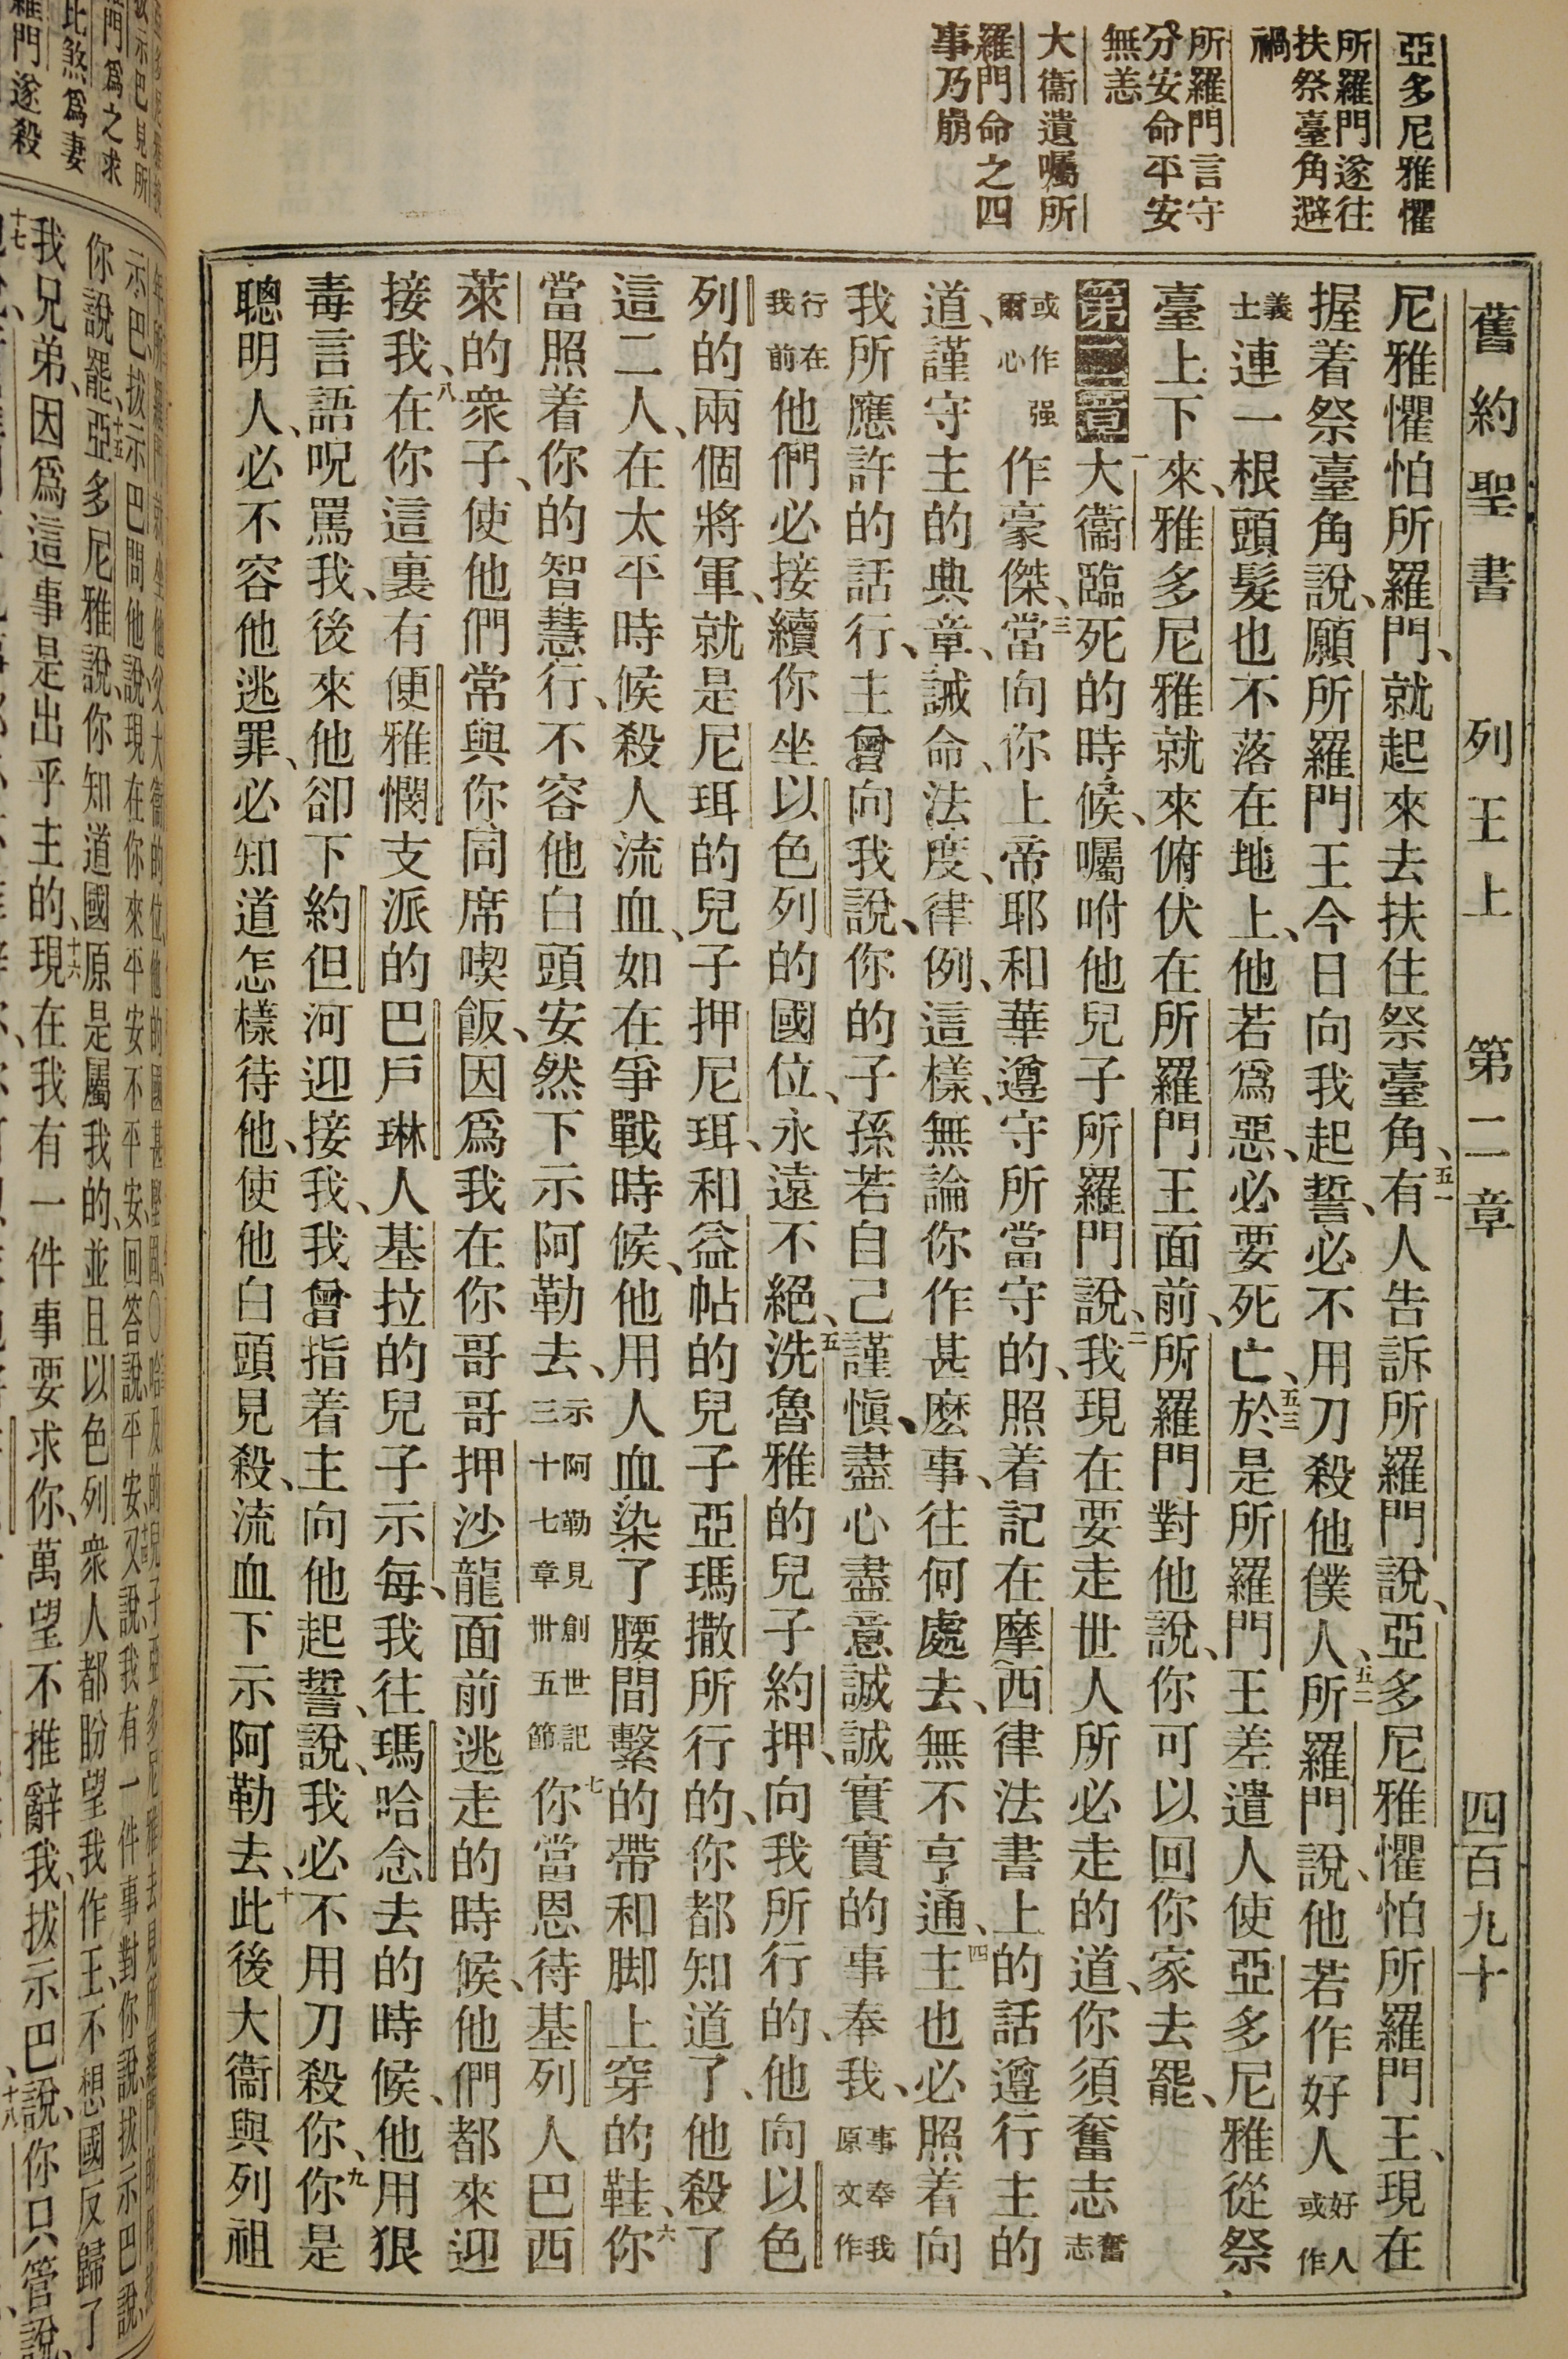 舊約聖書 列王上 第二章 四百九十
亞多尼雅懼
所羅門遂往
扶祭臺角避
禍
所羅門言守
分安命平安
無恙
大衞遺囑所
羅門命之四
事乃崩
尼雅懼怕所羅門、就起來去扶住祭臺角、五一有人告訴所羅門說、亞多尼雅懼怕所羅門王、現在
握着祭臺角說、願所羅門王今日向我起誓、必不用刀殺他僕人、五二所羅門說、他若作好人好人或作
義士連一根頭髮也不落在地上、他若爲惡、必要死亡、五三於是所羅門王差遣人使亞多尼雅從祭
臺上下來、雅多尼雅就來俯伏在所羅門王面前、所羅門對他說、你可以回你家去罷、
第二章一大衞臨死的時候、囑咐他兒子所羅門說、二我現在要走世人所必走的道、你須奮志奮志
或作强爾心作豪傑、三當向你上帝耶和華遵守所當守的、照着記在摩西律法書上的話遵行主的
道、謹守主的典章、誡命、法度、律例、這樣、無論你作甚麽事、往何處去、無不亨通、四主也必照着向
我所應許的話行、主曾向我說、你的子孫若自己謹愼、盡心盡意誠誠實實的事奉我、事奉我原文作
行在我前他們必接續你坐以色列的國位、永遠不絕、五洗魯雅的兒子約押、向我所行的、他向以色
列的兩個將軍、就是尼珥的兒子押尼珥、和益帖的兒子亞瑪撒所行的、你都知道了、他殺了
這二人、在太平時候殺人流血、如在爭戰時候、他用人血染了腰間繫的帶和脚上穿的鞋、六你
當照着你的智慧行、不容他白頭安然下示阿勒去、示阿勒見創世記三十七章卅五節七你當恩待基列人巴西
萊的衆子、使他們常與你同席喫飯、因爲我在你哥哥押沙龍面前逃走的時候、他們都來迎
接我、八在你這裏有便雅憫支派的巴戶琳人基拉的兒子示每、我往瑪哈念去的時候、他用狠
毒言語呪罵我、後來他卻下約但河迎接我、我曾指着主向他起誓、說、我必不用刀殺你、九你是
聰明人、必不容他逃罪、必知道怎樣待他、使他白頭見殺、流血下示阿勒去、十此後大衞與列祖
你說罷、十五亞多尼雅說、你知道國原是屬我的、並且以色列衆人都盼望我作王、不想國反歸了
我兄弟、因爲這事是出乎主的、十六現在我有一件事要求你、萬望不推辭我、拔示巴說、你只管說、